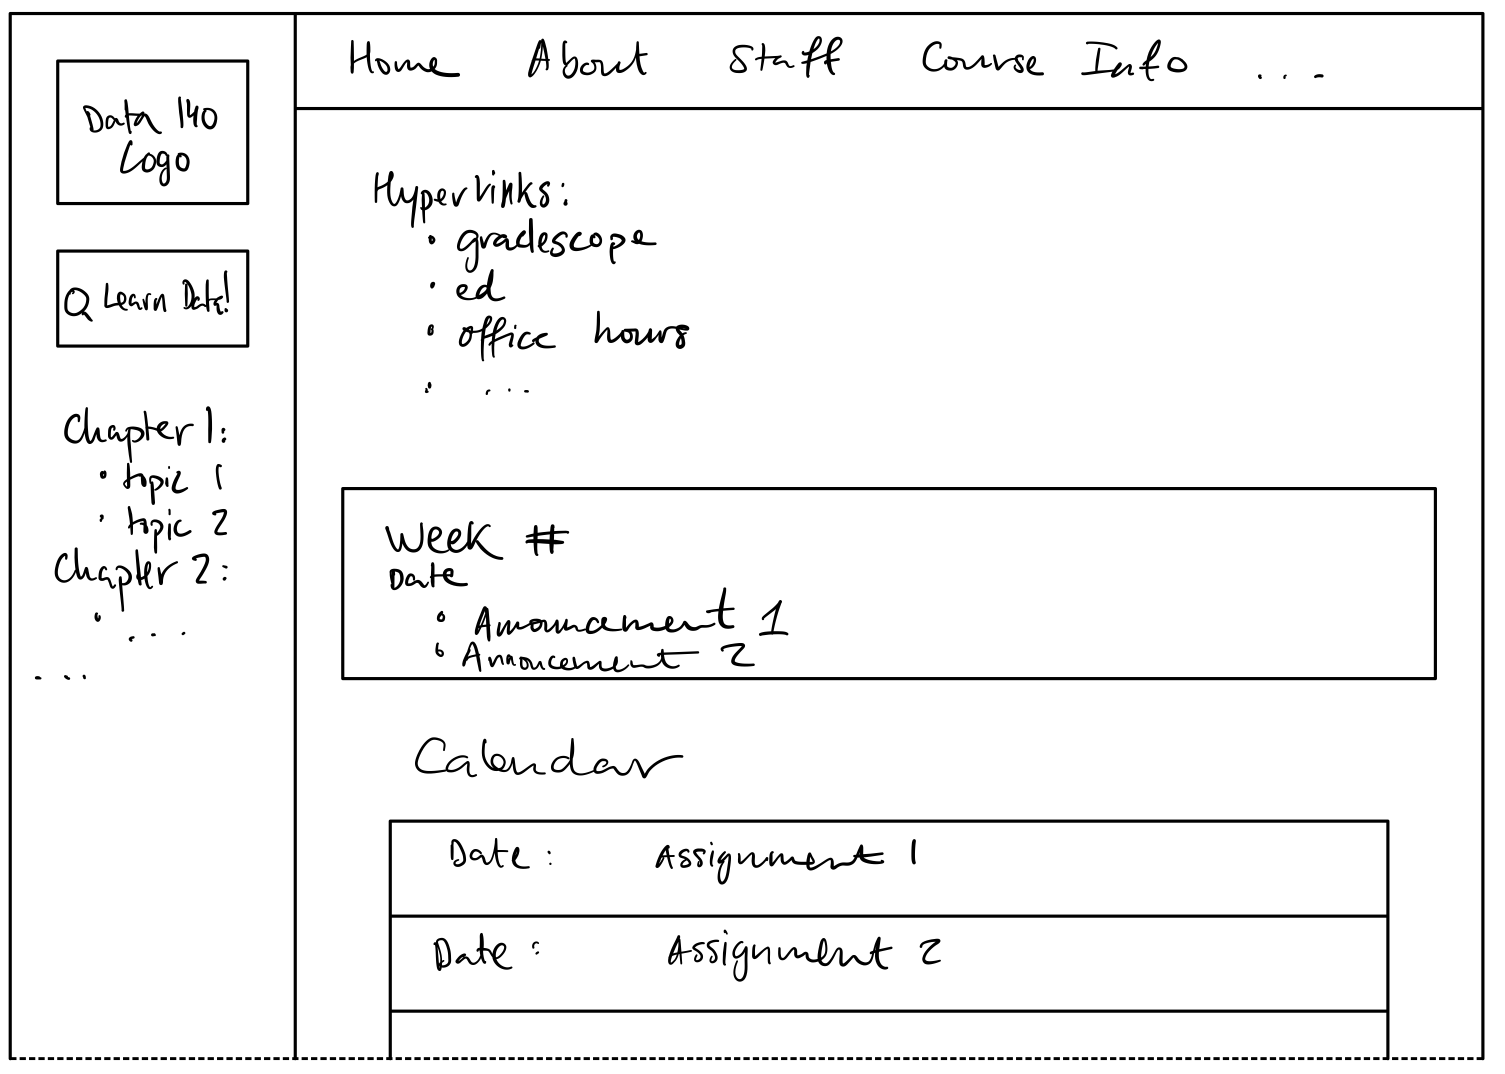 Data 140
Logo
Learn Data!
Chapter 1:
• topic 1
• topic 2
Chapter 2:
• ...
...
Home About Staff Course Info ...
Hyperlinks:
• gradescope
• ed
• office hours
• ...
Week #
Date
• Announcement 1
• Annoucement 2
Calendar
Date: Assignment 1
Date: Assignment 2